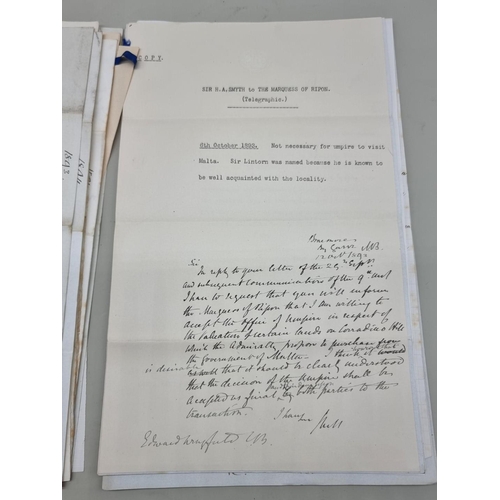 C O P Y.
SIR H.A.SMYTH to THE MARQUESS OF RIPON.
(Telegraphic.)
8th October 1892. Not necessary for umpire to visit
Malta. Sir Lintorn was named because he is known to
be well acquainted with the locality.
12 Oct 1892
Sir
In reply to your letter of the 29th Sept.
and subsequent communication of the 9th inst
I have to request that you will inform
the Marquess of Ripon that I am willing to
accept the office of Umpire in respect of
the valuation of certain lands on Corradino Hill
which the Admiralty propose to purchase from
the Government of Malta. I think it would
is desirable that it should be clearly understood
that the decision of the Umpire shall be
accepted as final by both parties to the
transaction. I have
Edward Wingfield CB